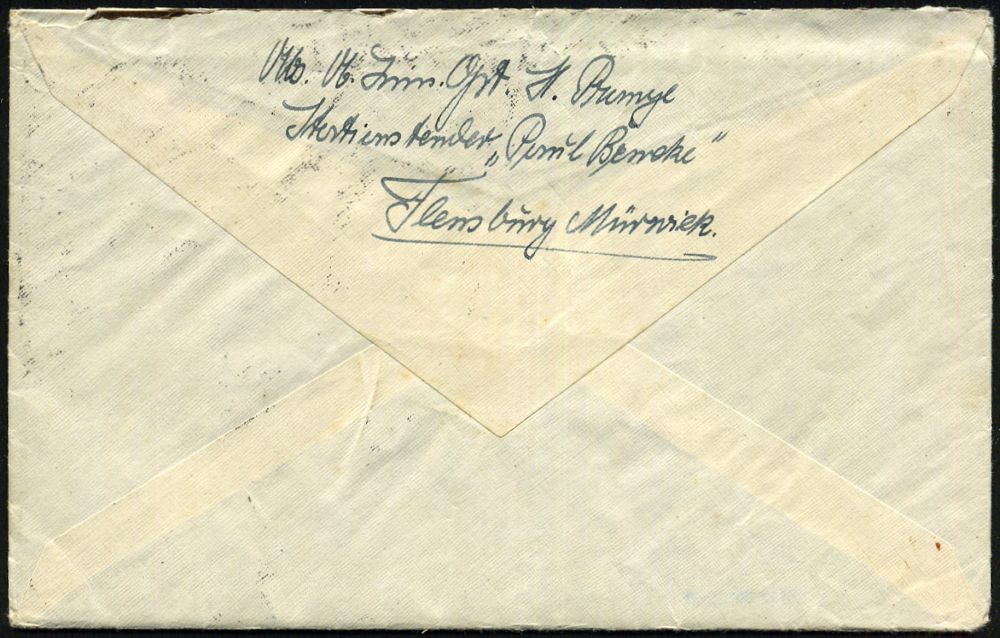 Abs. Ob. Zim. Gft. H. Pumye
Stationstender „Paul Beneke"
Flensburg Mürwick.